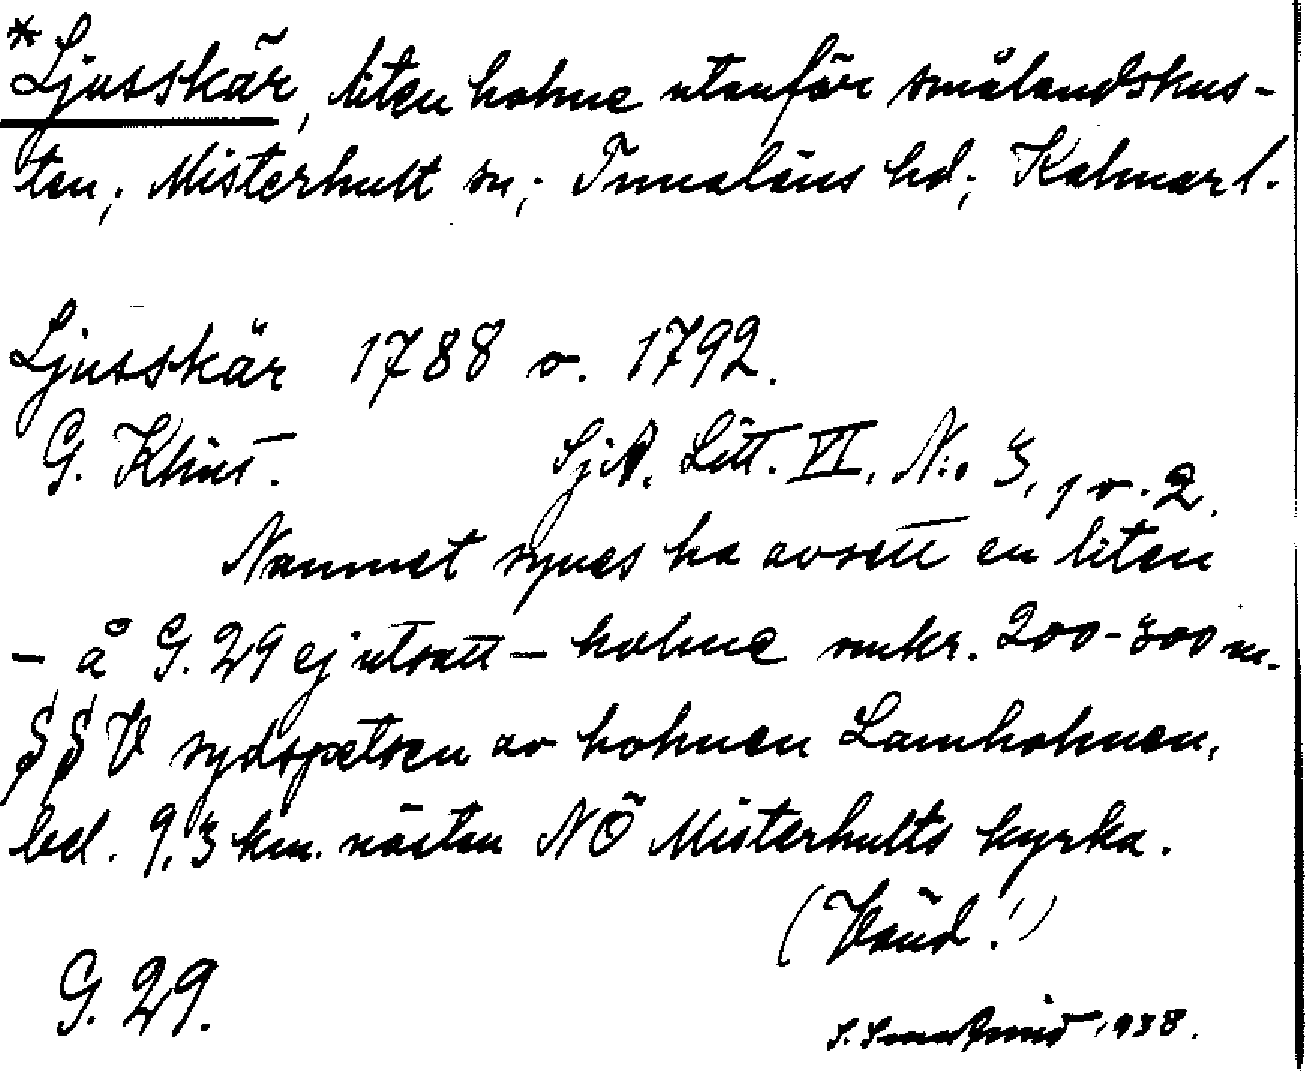 *Ljusskär, liten holme utanför smålandskus-
ten; Misterhult sn; Tunaläns hd; Kalmar l.
Ljusskär 1788 o. 1792.
G. Klint. SjA. Litt. VI, N:o 3, 1 o. 2.
Namnet synes ha avsett en liten
- å G. 29 ej utsatt - holme omkr. 200-300 m.
§§ V sydspetsen av holmen Lamholmen,
bel. 9,3 km. nästan NÖ Misterhults kyrka.
(Vänd!)
G. 29.
S. 1938.